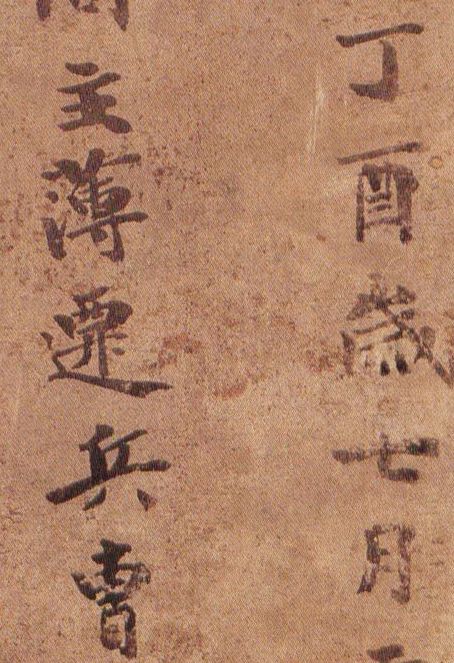 丁酉歲七月
主薄遷兵曹